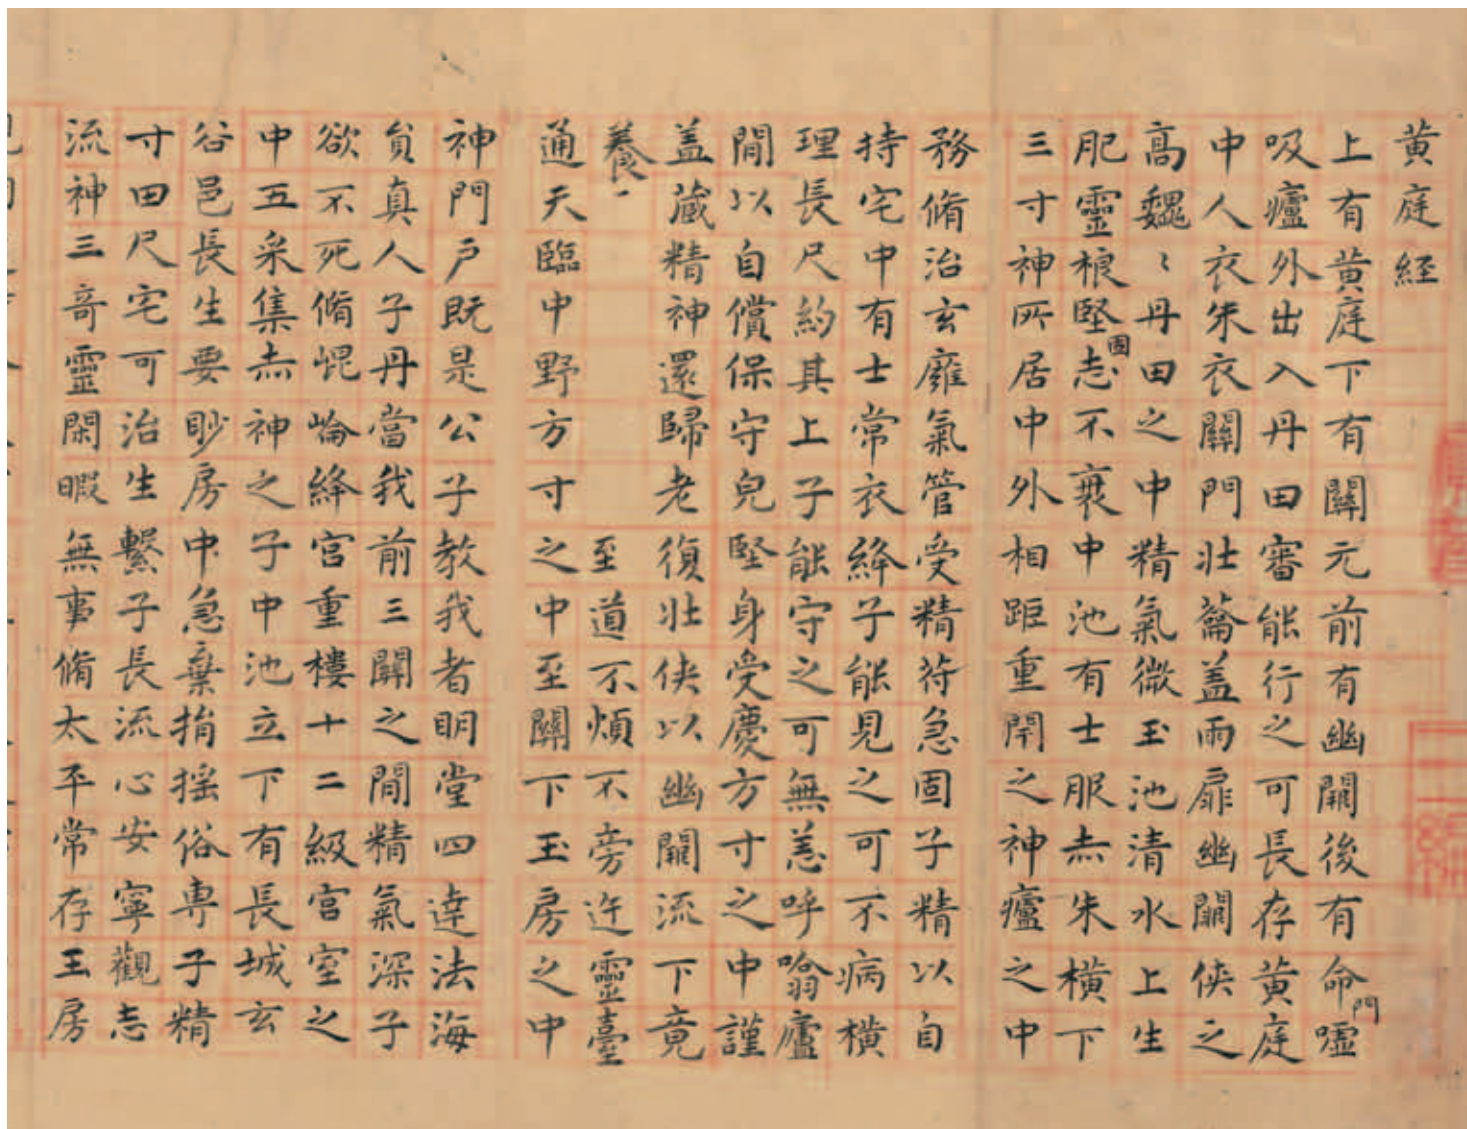 黄庭経
上有黄庭下有關元前有幽闕後有命門噓
吸廬外出入丹田審能行之可長存黄庭
中人衣朱衣關門壯籥盖兩扉幽闕俠之
高巍〻丹田之中精氣微玉池清水上生
肥靈根堅固志不衰中池有士服赤朱横下
三寸神所居中外相距重閇之神廬之中
務脩治玄廱氣管受精苻急固子精以自
持宅中有士常衣絳子能見之可不病横
理長尺約其上子能守之可無恙呼噏廬
間以自償保守皃堅身受慶方寸之中謹
盖藏精神還歸老復壯俠以幽闕流下竟
養 至道不煩不旁迕靈臺
通天臨中野方寸之中至關下玉房之中
神門户既是公子教我者明堂四達法海
貟真人子丹當我前三關之間精氣深子
欲不死脩崐崘絳宮重樓十二級宮室之
中五采集赤神之子中池立下有長城玄
谷邑長生要眇房中急棄捐揺俗専子精
寸田尺宅可治生繫子長流心安寧觀志
流神三奇靈閑暇無事脩太平常存玉房